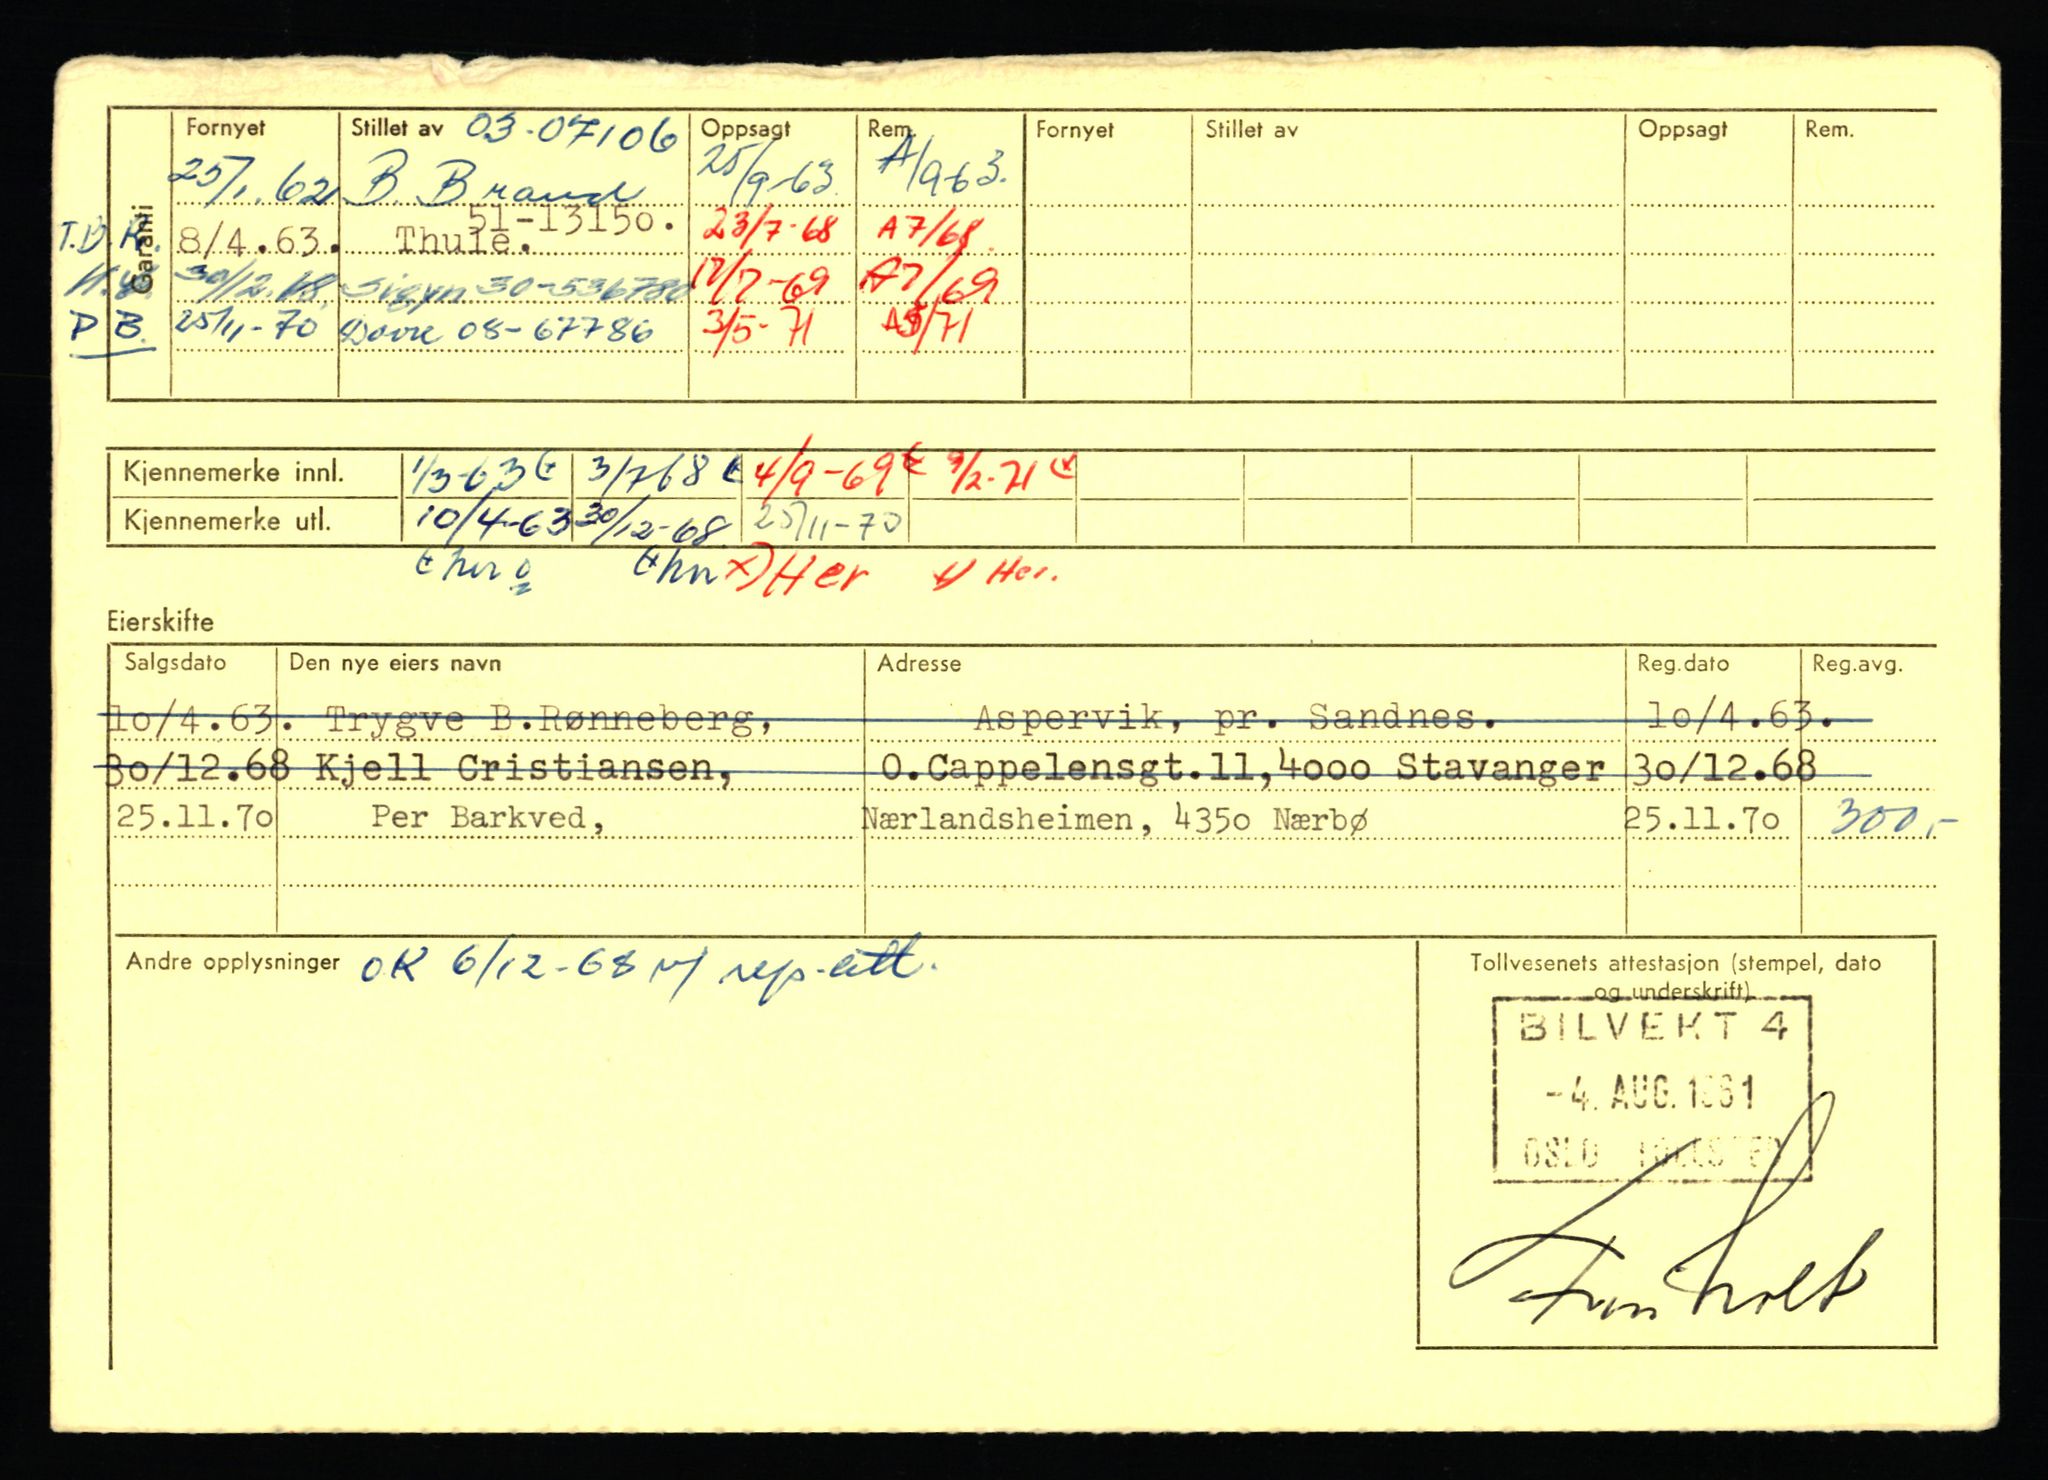 Garanti
Fornyet Stillet av 03-07106 Oppsagt Rem. Fornyet Stillet av Oppsagt Rem.
25/1.62 B. Brand 25/9-63 A/9-63.
51-13150.
T.B.R. 8/4.63. Thule. 23/7-68 A7/68
30/12.68 Sigyn 30-536780 17/7-69 A7/69
P B. 25/11-70 Dovre 08-67786 3/5-71 A5/71
Kjennemerke innl. 1/3-63 3/7 68 4/9-69 9/2-71
Kjennemerke utl. 10/4-63 30/12-68 25/11-70
Her Her.
Eierskifte
Salgsdato Den nye eiers navn Adresse Reg.dato Reg.avg.
10/4.63. Trygve B.Rønneberg, Aspervik, pr. Sandnes. 10/4.63.
30/12.68 Kjell Cristiansen, O.Cappelensgt.11,4000 Stavanger 30/12.68
25.11.70 Per Barkved, Nærlandsheimen, 4350 Nærbø 25.11.70 300,-
Andre opplysninger OK 6/12-68 m/ rep-att.
Tollvesenets attestasjon (stempel, dato
og underskrift)
BILVEKT 4
-4. AUG. 1961
OSLO